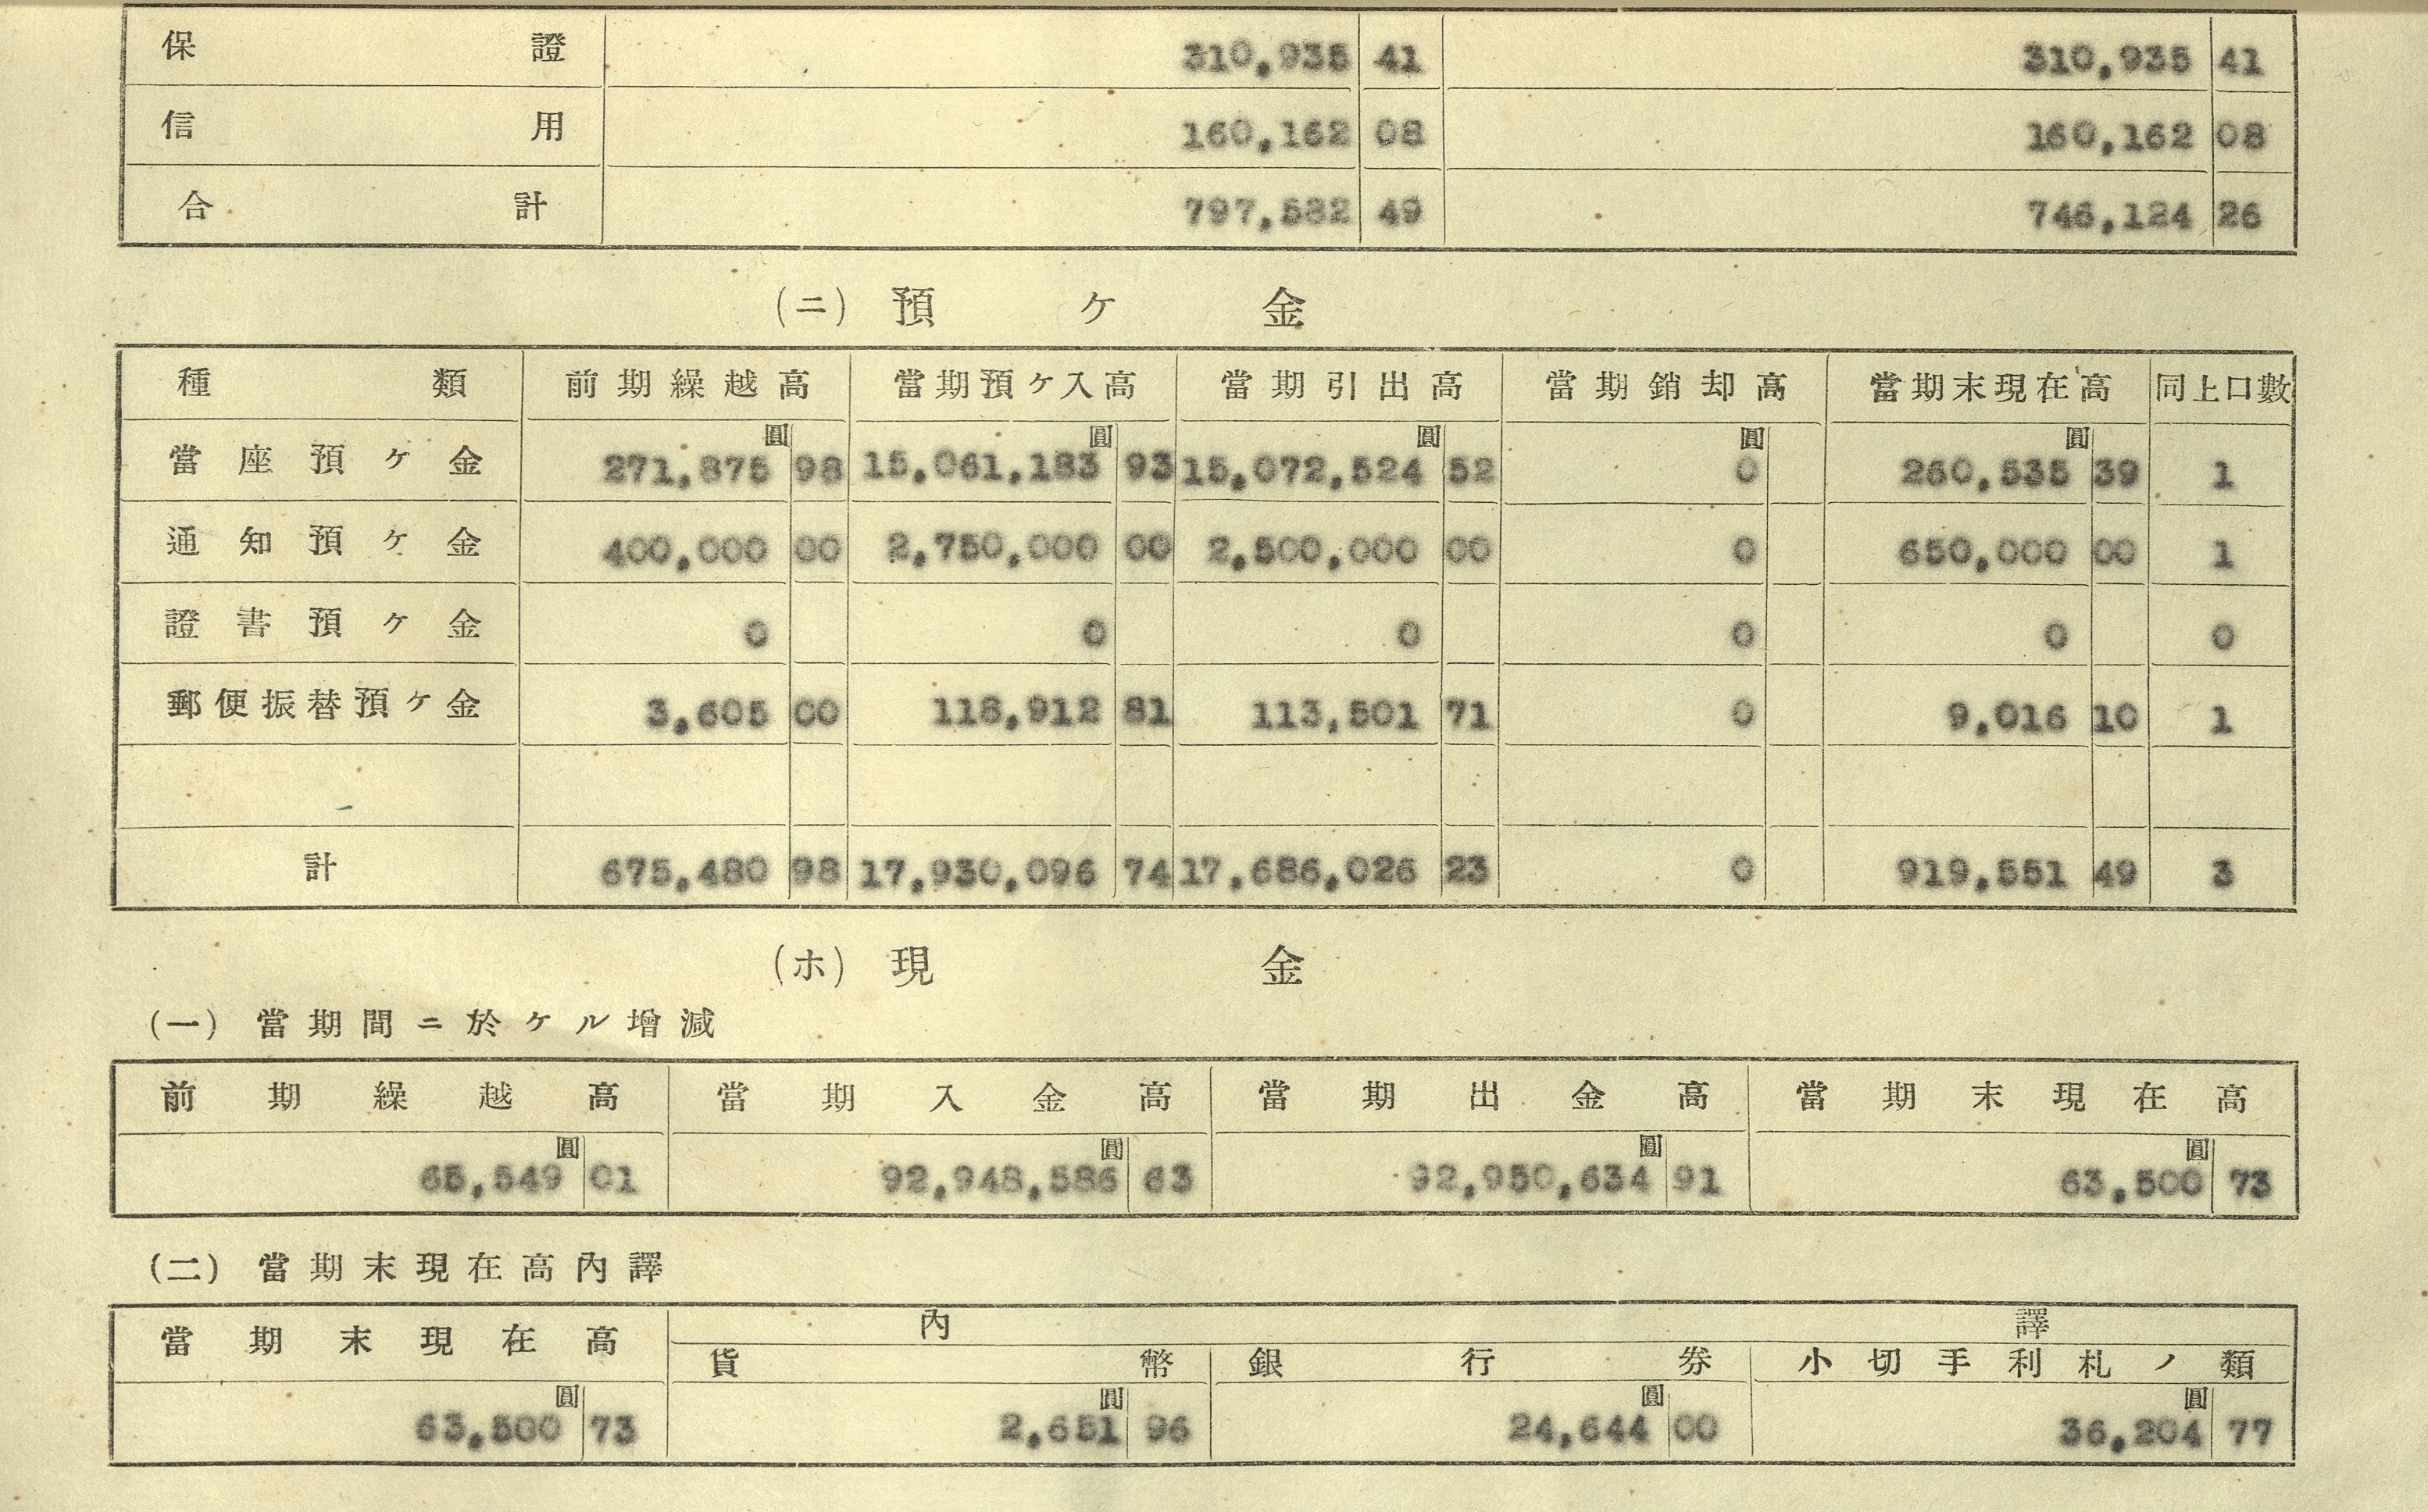 保證 310,935 41 310,935 41
信用 160,162 08 160,162 08
合計 797,582 49 746,124 26
(ニ) 預ケ金
種類 前期繰越高 當期預ケ入高 當期引出高 當期銷却高 當期末現在高 同上口數
圓 圓 圓 圓 圓
當座預ケ金 271,875 98 15,061,183 93 15,072,524 52 0 260,535 39 1
通知預ケ金 400,000 00 2,750,000 00 2,500,000 00 0 650,000 00 1
證書預ケ金 0 0 0 0 0 0
郵便振替預ケ金 3,605 00 118,912 81 113,501 71 0 9,016 10 1
計 675,480 98 17,930,096 74 17,686,026 23 0 919,551 49 3
(ホ) 現金
(一) 當期間ニ於ケル增減
前期繰越高 當期入金高 當期出金高 當期末現在高
圓 圓 圓 圓
65,549 01 92,948,586 63 92,950,634 91 63,500 73
(二) 當期末現在高內譯
當期末現在高 內譯
貨幣 銀行券 小切手利札ノ類
圓 圓 圓 圓
63,500 73 2,651 96 24,644 00 36,204 77